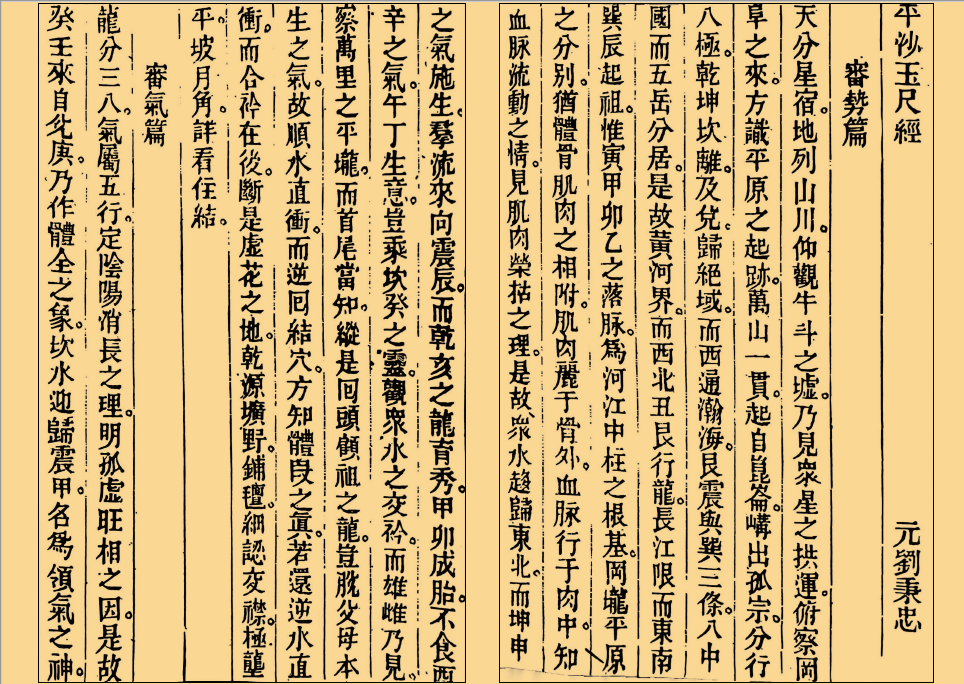 平沙玉尺經 元劉秉忠
審勢篇
天分星宿。地列山川。仰觀牛斗之墟。乃見衆星之拱運。俯察岡
阜之來。方識平原之起跡。萬山一貫。起自崑崙。嵴出孤宗。分行
八極。乾坤坎離。及兌歸絕域。而西通瀚海。艮震與巽三條。八中
國而五岳分居。是故黃河界。而西北丑艮行龍。長江限而東南
巽辰起祖。惟寅甲卯乙之落脉。爲河江中柱之根基。岡壠平原
之分别。猶體骨肌肉之相附。肌肉麗于骨外。血脉行于肉中。知
血脉流動之情。見肌肉榮枯之理。是故衆水趨歸東北。而坤申
之氣施生。羣流來向震辰。而乾亥之龍育秀。甲卯成胎。不食酉
辛之氣。午丁生意。豈乘坎癸之靈。觀衆水之交衿。而雄雌乃見。
察萬里之平壠。而首尾當知。縱是囘頭顧祖之龍。豈脫父母本
生之氣。故順水直衝。而逆囘結穴。方知體段之眞。若還逆水直
衝。而合衿在後。斷是虛花之地。乾源壙野。鋪氊細認交襟。極壟
平坡。月角。詳看住結。
審氣篇
龍分三八。氣屬五行。定陰陽消長之理。明孤虛旺相之因。是故
癸壬來自兊庚。乃作體全之象。坎水迎歸震甲。名爲領氣之神。